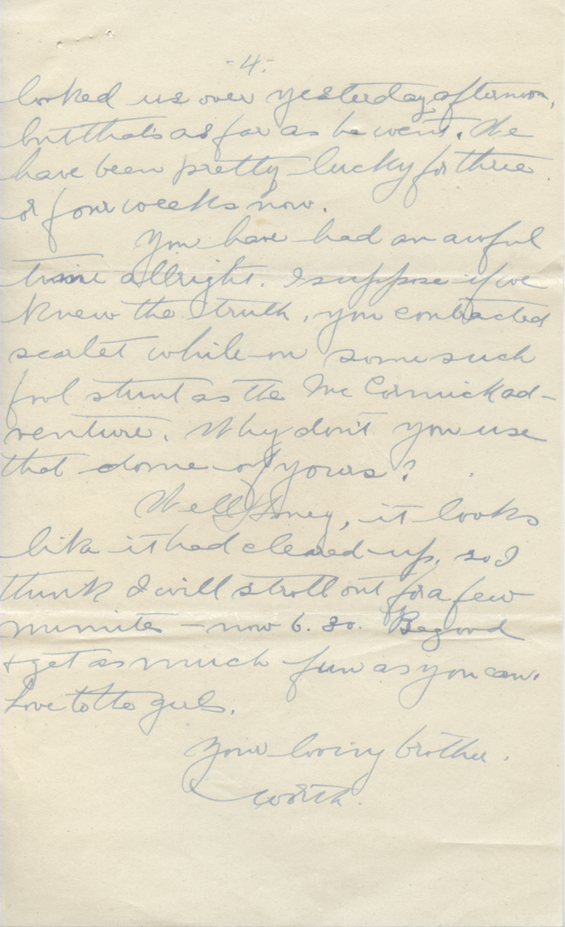 -4-
looked us over yesterday afternoon,
but that's as far as he went. We
have been pretty lucky for three
or four weeks now.
You have had an awful
time allright. I suppose if we
knew the truth, you contracted
scarlet while on some such
fool stunt as the McCormick ad-
venture. Why don't you use
that dome of yours?
Well Honey, it looks
like it had cleared up, so I
think I will stroll out for a few
minites - now 6.30. Be good
& get as much fun as you can.
Love to the girls.
Your loving brother.
Worth.